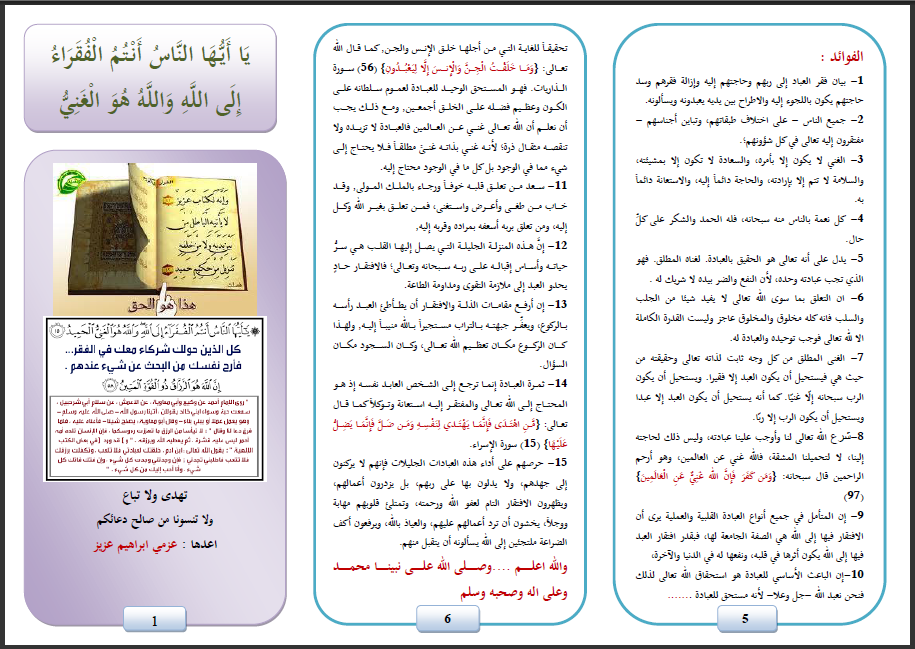 الفوائد :
1- بيان فقر العباد إلى ربهم وحاجتهم إليه وإزالة فقرهم وسد
حاجتهم يكون باللجوء إليه والاطراح بين يديه يعبدونه ويسألونه.
2- جميع الناس - على اختلاف طبقاتهم، وتباين أجناسهم -
مفتقرون إليه تعالى في كل شؤونهم؛.
3- الغني لا يكون إلا بأمره، والسعادة لا تكون إلا بمشيئته،
والسلامة لا تتم إلا بإرادته، والحاجة دائماً إليه، والاستعانة دائماً
به.
4- كل نعمة بالناس منه سبحانه، فله الحمد والشكر على كلّ
حال.
5- يدل على أنه تعالى هو الحقيق بالعبادة. لغناه المطلق. فهو
الذي تجب عبادته وحده، لأن النفع والضر بيده لا شريك له .
6- ان التعلق بما سوى الله تعالى لا يفيد شيئا من الجلب
والسلب فانه كله مخلوق والمخلوق عاجز وليست القدرة الكاملة
الا لله تعالى فوجب توحيده والعبادة له.
7- الغني المطلق من كل وجه ثابت لذاته تعالى وحقيقته من
حيث هي فيستحيل أن يكون العبد إلا فقيرا. ويستحيل أن يكون
الرب سبحانه إلّا غنيًا. كما أنه يستحيل أن يكون العبد إلا عبدا
ويستحيل أن يكون الرب إلا ربّا.
8-شرّع الله تعالى لنا وأوجب علينا عبادته، وليس ذلك لحاجته
إلينا، لا لتحميلنا المشقة، فالله غني عن العالمين، وهو أرحم
الراحمين قال سبحانه: {وَمَن كَفَرَ فَإِنَّ الله غَنِيٌّ عَنِ الْعَالَمِينَ}
(97)
9- إن المتأمل في جميع أنواع العبادة القلبية والعملية يرى أن
الافتقار فيها إلى الله هي الصفة الجامعة لها، فبقدر افتقار العبد
فيها إلى الله يكون أثرها في قلبه، ونفعها له في الدنيا والآخرة،
10-إن الباعث الأساسي للعبادة هو استحقاق الله تعالى لذلك
فنحن نعبد الله -جل وعلا- لأنه مستحق للعبادة .......
5
تحقيقاً للغاية التي من أجلها خلق الإنس والجن، كما قال الله
تعالى: {وَمَا خَلَقْتُ الْجِنَّ وَالْإِنسَ إِلَّا لِيَعْبُدُونِ} (56) سورة
الذاريات. فهو المستحق الوحيد للعبادة لعموم سلطانه على
الكون وعظيم فضله على الخلق أجمعين، ومع ذلك يجب
أن نعلم أن الله تعالى غني عن العالمين فالعبادة لا تزيده ولا
تنقصه مثقال ذرة؛ لأنه غني بذاته غنىً مطلقاً فلا يحتاج إلى
شيء مما في الوجود بل كل ما في الوجود محتاج إليه.
11- سعد من تعلق قلبه خوفاً ورجاء بالملك المولى، وقد
خاب من طغى وأعرض واستغنى، فمن تعلق بغير الله وكل
إليه، ومن تعلق بربه أسعفه بمراده وقربه إليه,
12- إنَّ هذه المنزلة الجليلة التي يصل إليها القلب هي سرُّ
حياته وأساس إقباله على ربه سبحانه وتعالى؛ فالافتقار حادٍ
يحدو العبد إلى ملازمة التقوى ومداومة الطاعة.
13- إن أرفع مقامات الذلة والافتقار أن يطأطئ العبد رأسه
بالركوع، ويعفِّر جبهته بالتراب مستجيراً بالله منيباً إليه, ولهذا
كان الركوع مكان تعظيم الله تعالى، وكان السجود مكان
السؤال.
14- ثمرة العبادة إنما ترجع إلى الشخص العابد نفسه إذ هو
المحتاج إلى الله تعالى والمفتقر إليه استعانة وتوكلاً كما قال
تعالى: {مَّنِ اهْتَدَى فَإِنَّمَا يَهْتَدي لِنَفْسِهِ وَمَن ضَلَّ فَإِنَّمَا يَضِلُّ
عَلَيْهَا} (15) سورة الإسراء.
15- حرصهم على أداء هذه العبادات الجليلات فإنهم لا يركنون
إلى جهدهم، ولا يدلون بها على ربهم، بل يزدرون أعمالهم،
ويظهرون الافتقار التام لعفو الله ورحمته، وتمتلئ قلوبهم مهابة
ووجلاً، يخشون أن ترد أعمالهم عليهم، والعياذ بالله، ويرفعون أكف
الضراعة ملتجئين إلى الله يسألونه أن يتقبل منهم.
والله اعلم ....وصلى الله على نبينا محمد
وعلى اله وصحبه وسلم
6
يَا أَيُّهَا النَّاسُ أَنْتُمُ الْفُقَرَاءُ
إِلَى اللَّهِ وَاللَّهُ هُوَ الْغَنِيُّ
وإنه لكتاب عزيز
لا يأتيه الباطل من
بين يديه ولا من خلفه
تنزيل من حكيم حميد
هذا هو الحق
يَٰٓأَيُّهَا النَّاسُ أَنتُمُ الْفُقَرَآءُ إِلَى اللَّهِ وَاللَّهُ هُوَ الْغَنِيُّ الْحَمِيدُ ١٥
كل الذين حولك شركاء معك في الفقر...
فأرح نفسك من البحث عن شيء عندهم .
إِنَّ اللَّهَ هُوَ الرَّزَّاقُ ذُو الْقُوَّةِ الْمَتِينُ ٥٨
تهدى ولا تباع
ولا تنسونا من صالح دعائكم
اعدها : عزمي ابراهيم عزيز
1